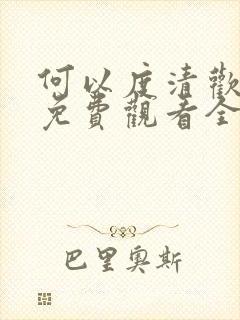 何以度清歡
免費觀看全
巴里奧斯